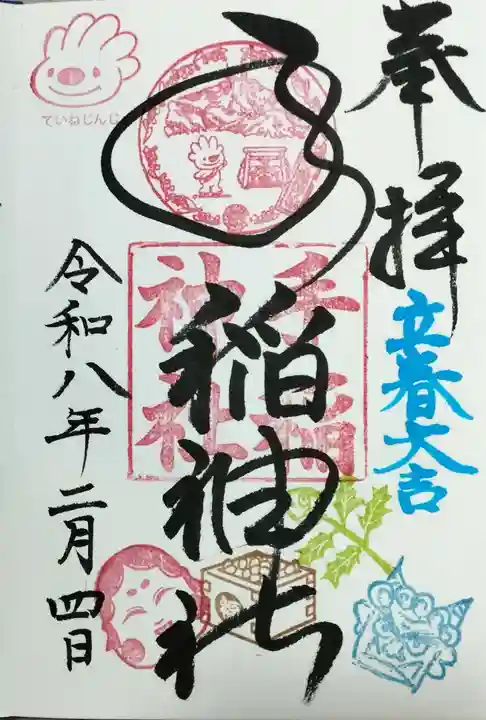 奉拝
立春大吉
手稲神社
手稲
神社
令和八年二月四日
ていねじんじゃ